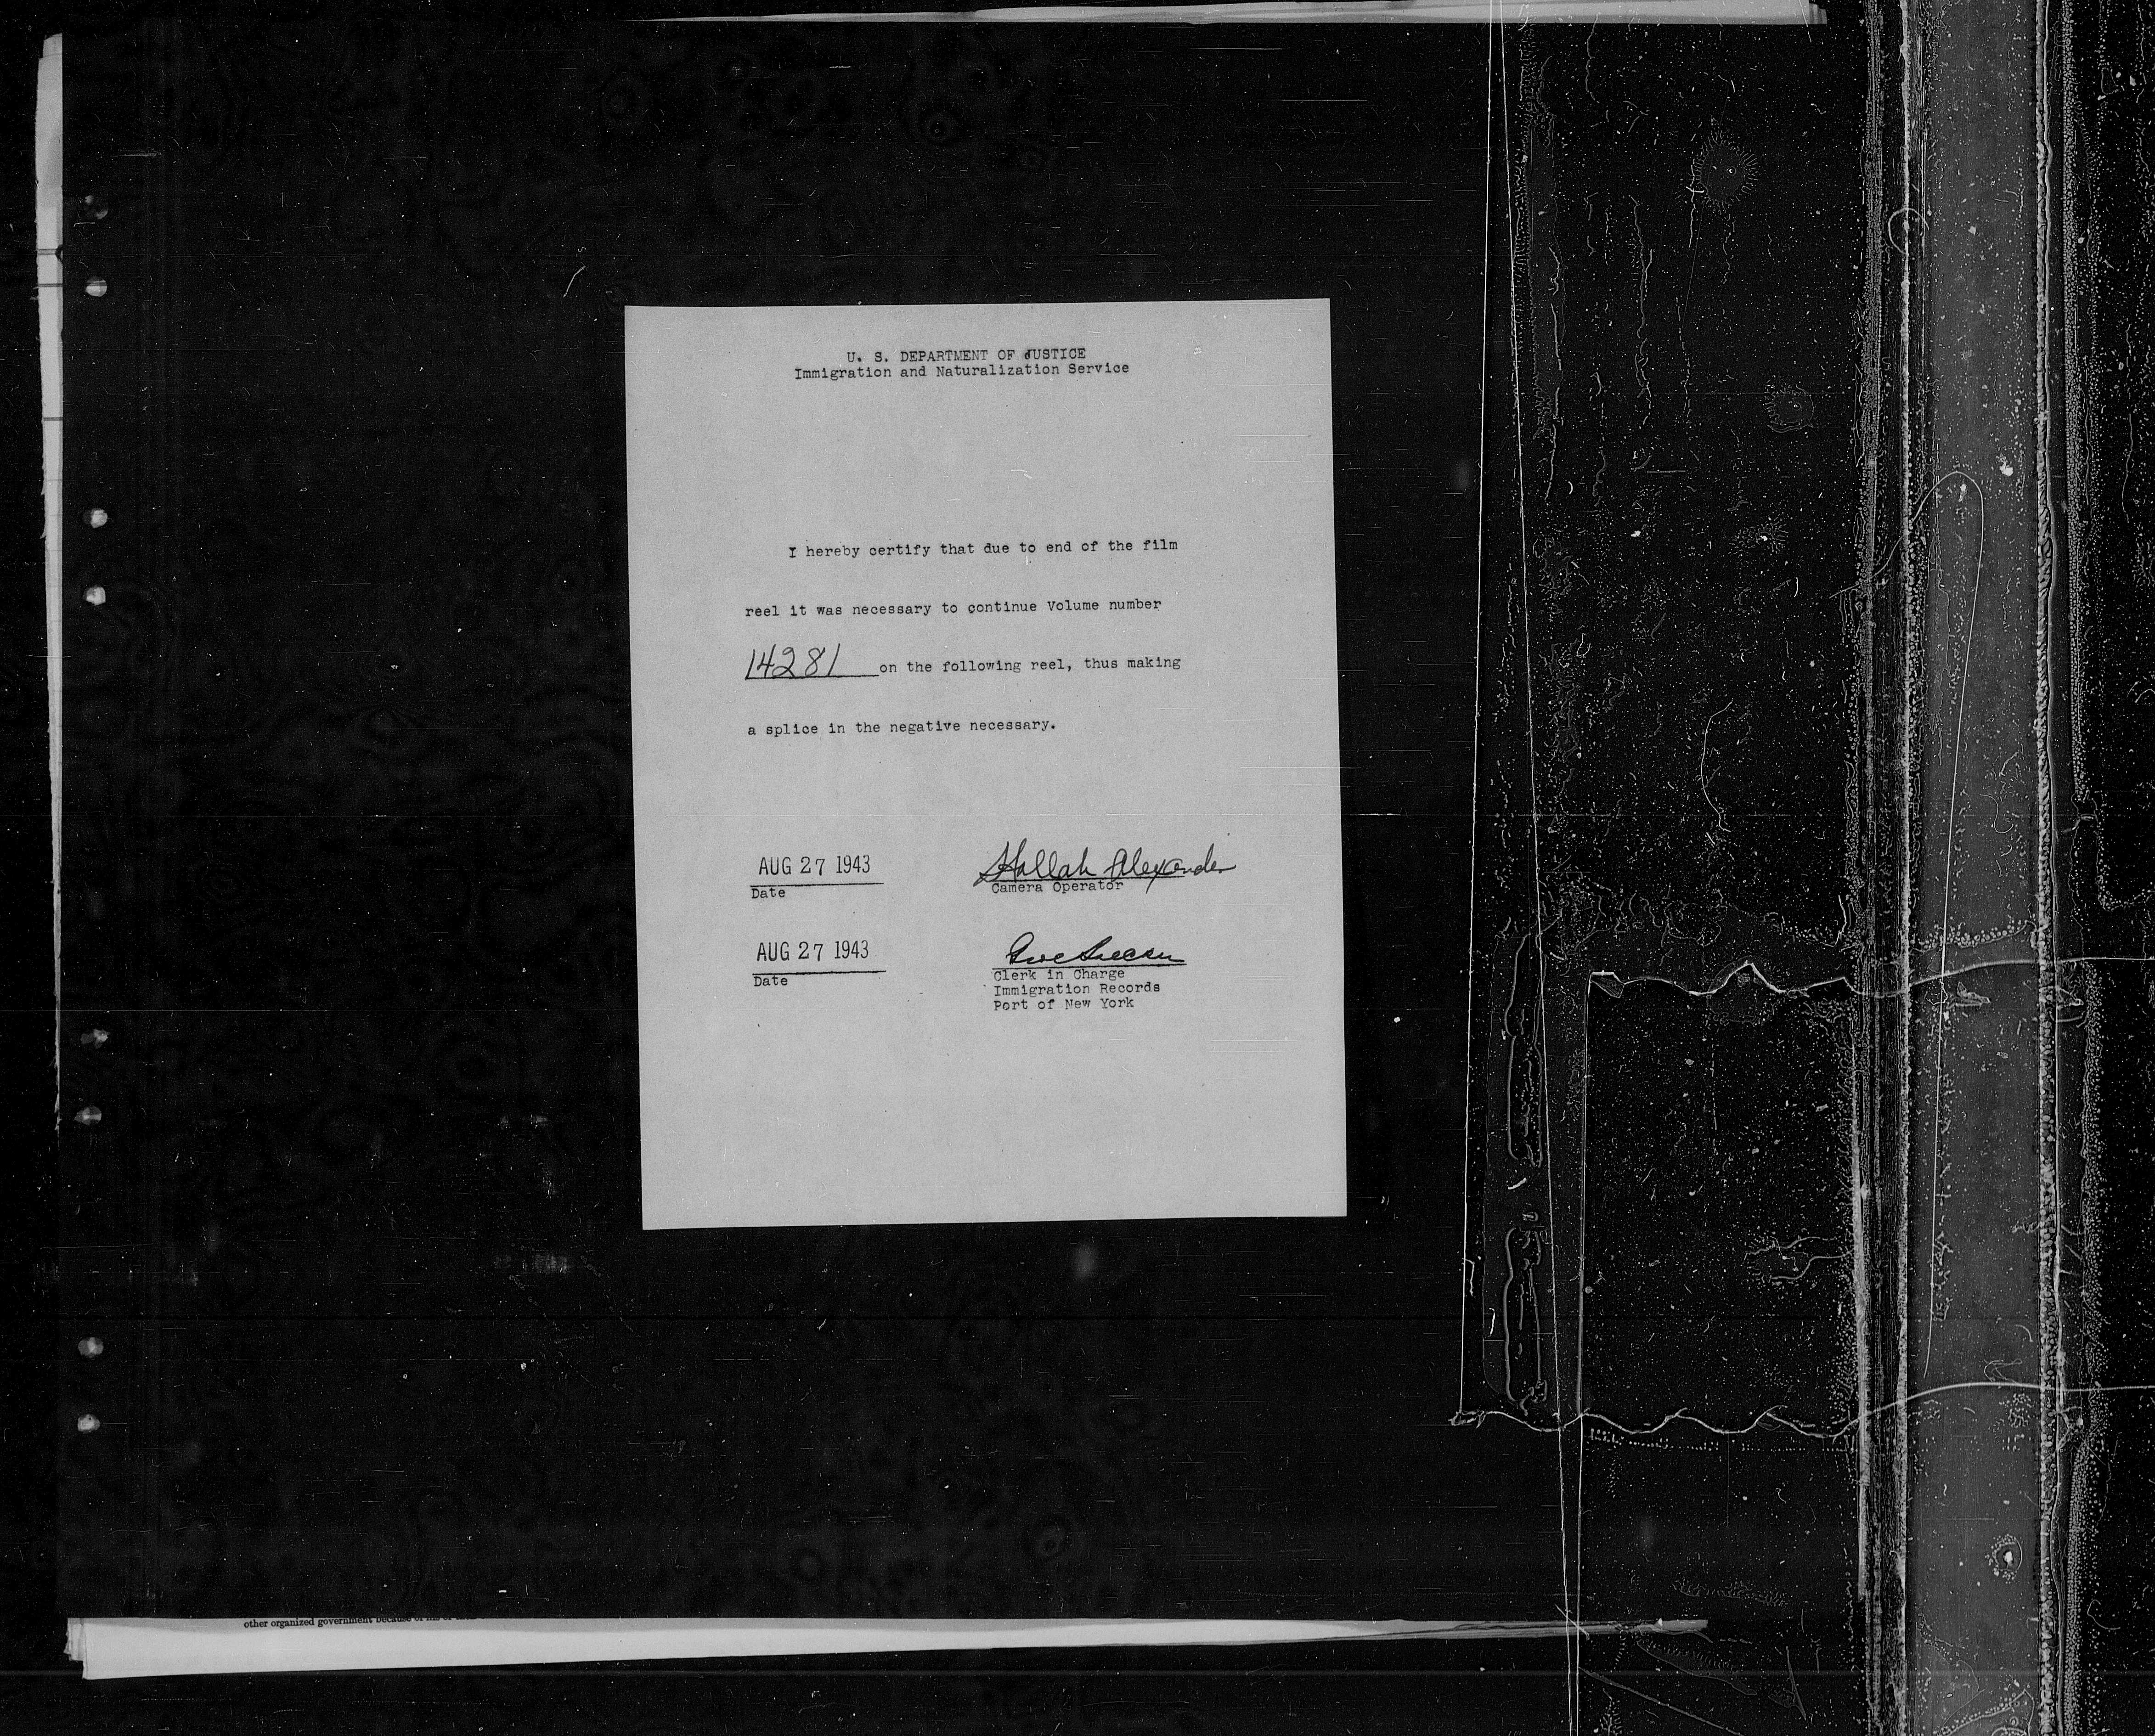 U. S. DEPARTMENT OF JUSTICE
Immigration and Naturalization Service
I hereby certify that due to end of the film
reel it was necessary to continue Volume number
14281 on the following reel, thus making
a splice in the negative necessary.
AUG 27 1943
Date
Hallah Alexander
Camera Operator
AUG 27 1943
Date
Clerk in Charge
Immigration Records
Port of New York
other organized government because of his or